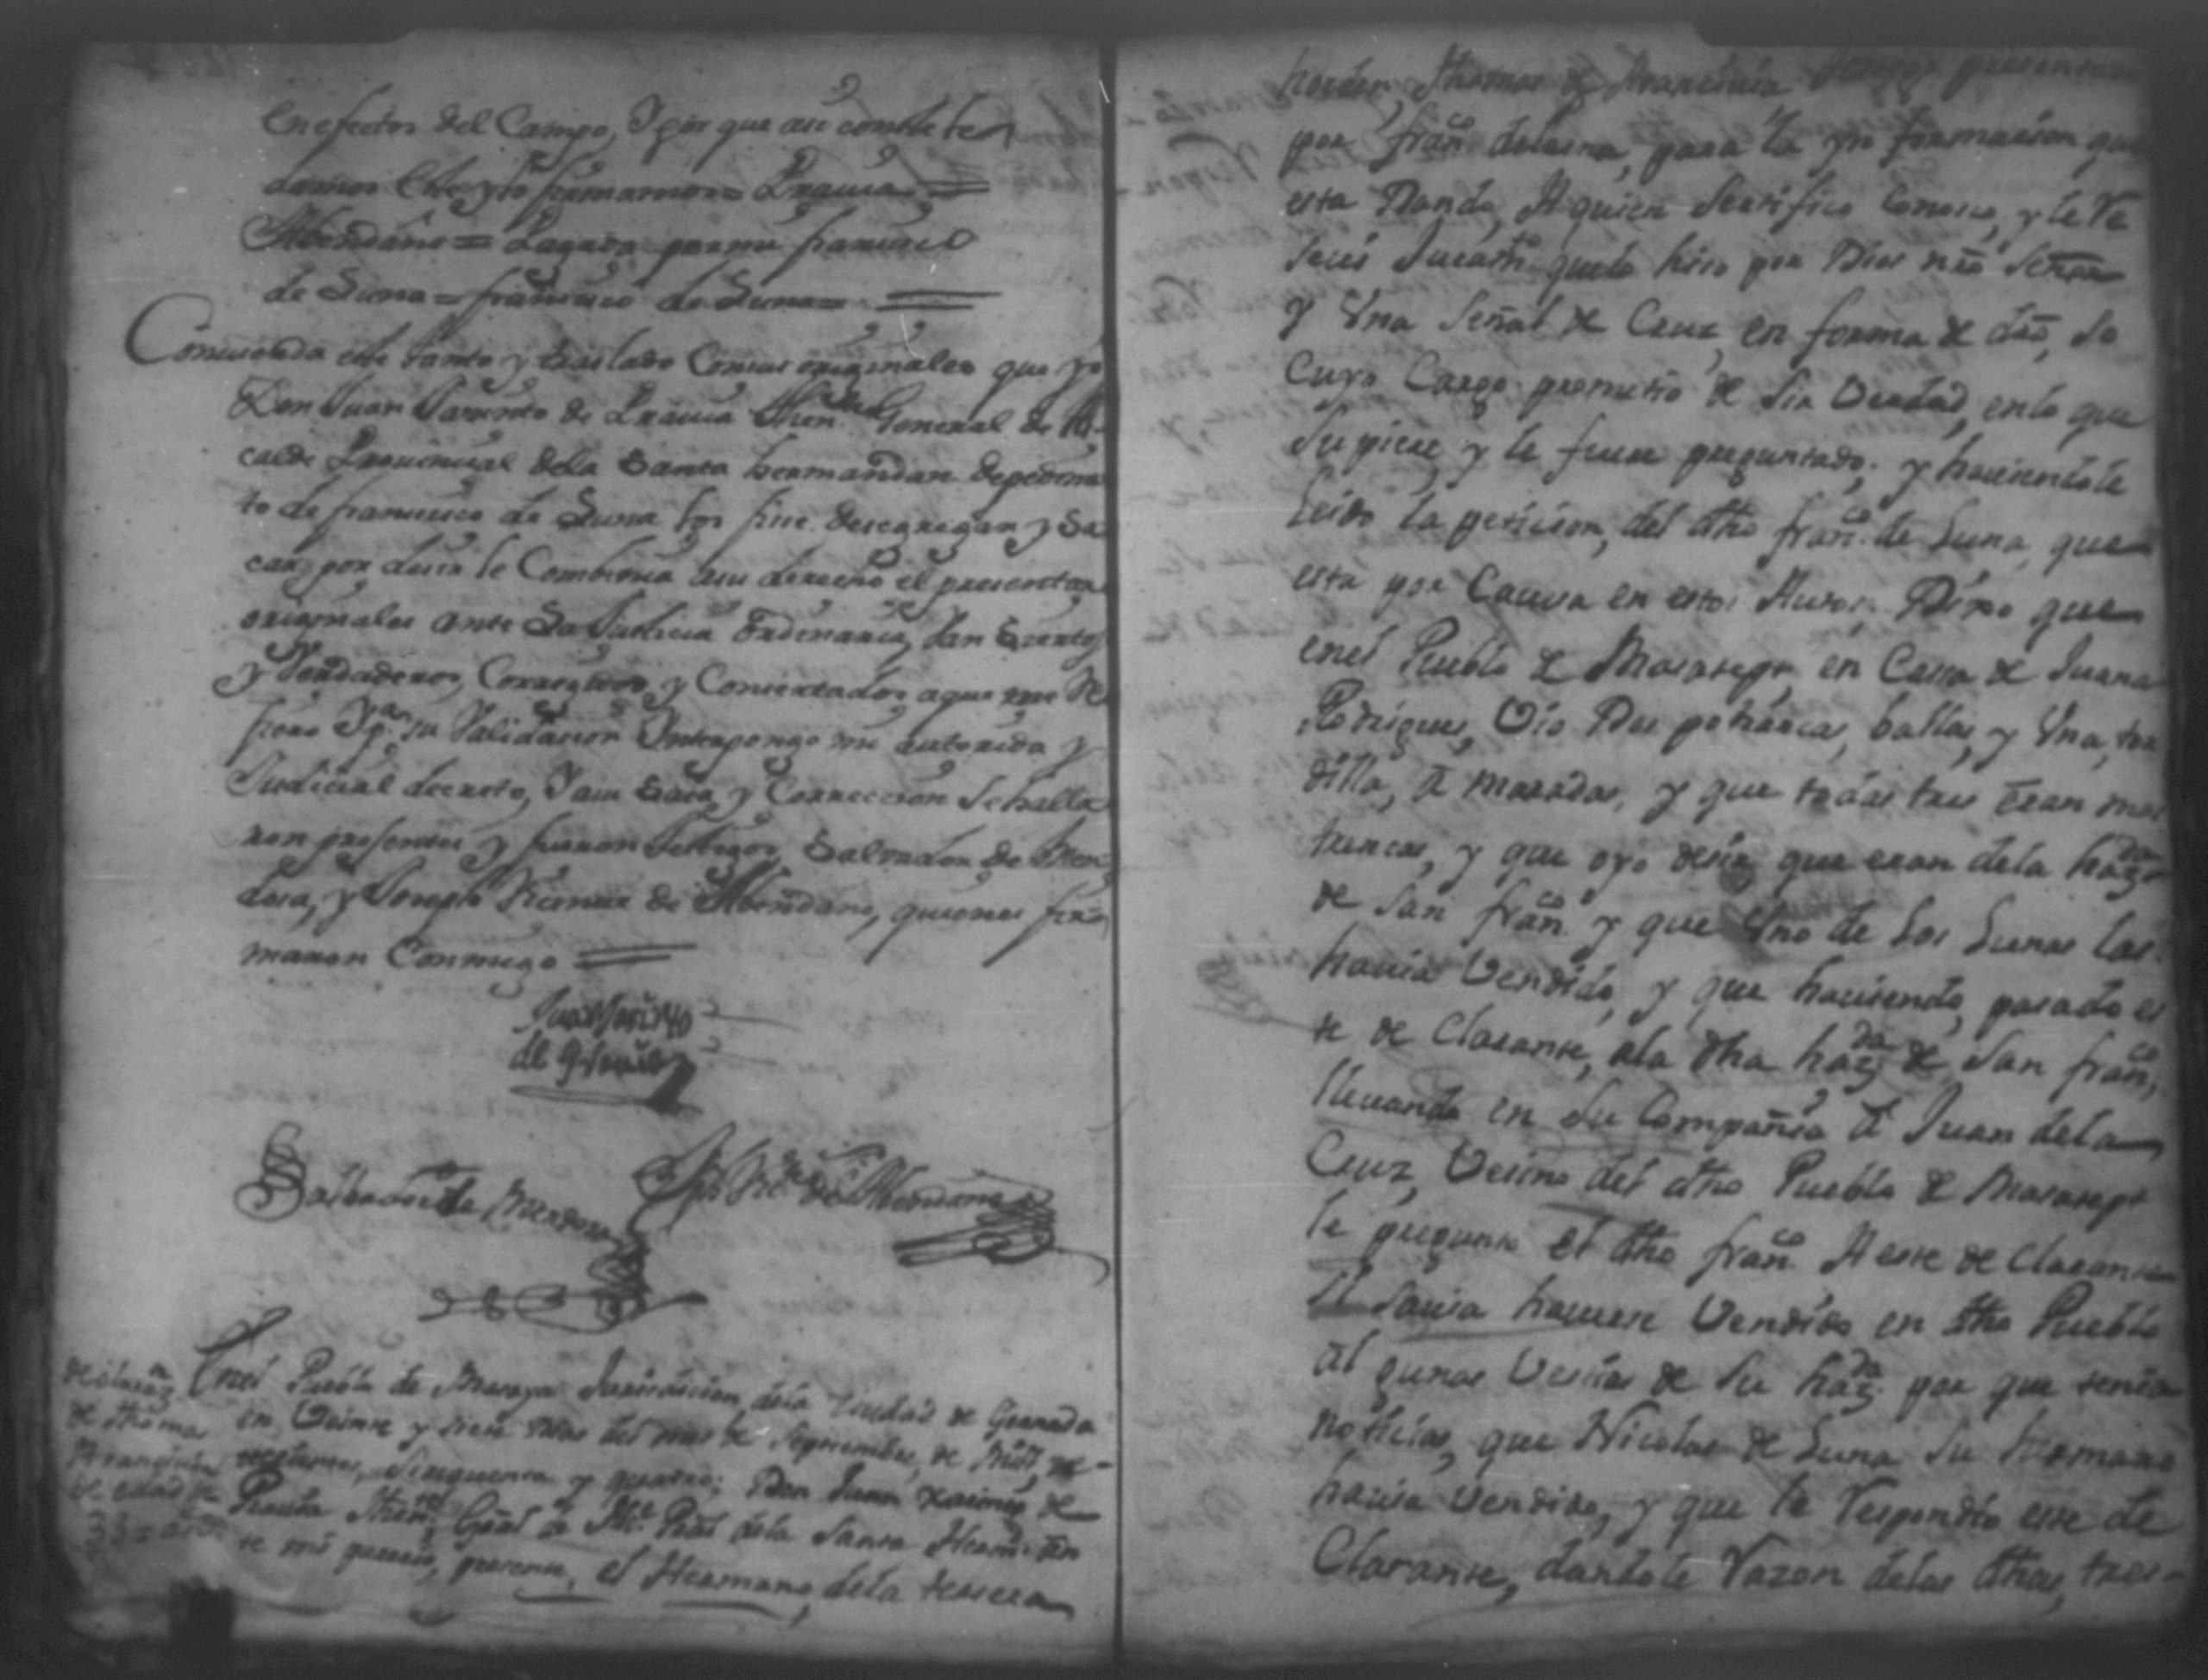 en efectos del Campo, Y por que asi conste
damos este yo firmamos = Prauia =
Abendaño = Pagada por mi francisco
de Luna = francisco de Luna =
Comcuerda este tanto y traslado Con sus originales que yo
Don Juan Jasinto de Prauia Then.te General de Al
calde Prouincial dela Santa hermandan de pedimen
to de francisco de Luna los hise desegregar y Sa
car, por desir le Combiene asu derecho el presentar
originales ante La Justicia ordinaria, ban Siertos
y Verdaderos, Corregidos y Consertados aque me Re
fiero Y p.a su Validasion Interpongo mi autorida y
Judicial decreto, Yasu Saca, y Correccion Se halla
ron presentes y fueron testigos Salvador de Men
dosa, y Joseph Vicente de Abendaño, quienes fir
maron Conmigo =
Salbador de Mendosa
de Abendaño
de claraz.n
de thomas
de edad de
35 años
Enel Pueblo de Masaya Jurisdicion dela Ciudad de Granada
en Veinte y siete dias del mes de Septiembre, de Mill, se
tecientos, Sinquenta y quatro; Don Juan Jacinto de
Prauia Then.te Gñal de Al.e Pñal dela Santa Hermd. an
te mi parecio, presente, el Hermano dela tersera
horden, Thomas de testigo presentado
por fran.co deluna, para la ynformacion que
esta Dando, A quien Sertifico Conosco, y le Re
seui Juram.to quelo hiso por Dios nrõ Señor
y Vna Señal de Cruz, en forma de dro, So
Cuyo Cargo prometio de Sir Verdad, enlo que
Supiere y le fuere preguntado; y haviendole
Leido la peticion, del dho fran.co de Luna, que
esta por Caveza en estos Autos; Dixo que
enel Pueblo de Masatepe, en Cassa de Juana
Rodrigues, Vio Dos potrancas, ballas, y Vna, tor
dilla, a marradas, y que todas tres Eran mos
trencas, y que oyo desir, que eran dela haz.da
de San fran.co y que Vno de Los Lunas las
hauia Vendido, y que hauiendo, pasado es
te de Clarante, ala dha haz.da de San fran.co,
lleuando en Su Compañia a Juan dela
Cruz, Vesino del dho Pueblo de Masatepe
le pregunto el dho fran.co A este de Clarante
Si Sauia hauerse Vendido en dho Pueblo
al gunas Vestias de Su haz.da por que tenia
noticias, que Nicolas de Luna Su hermano
hauia Vendido, y que le Respondio este de
Clarante, dandole Razon delas dhas, tres